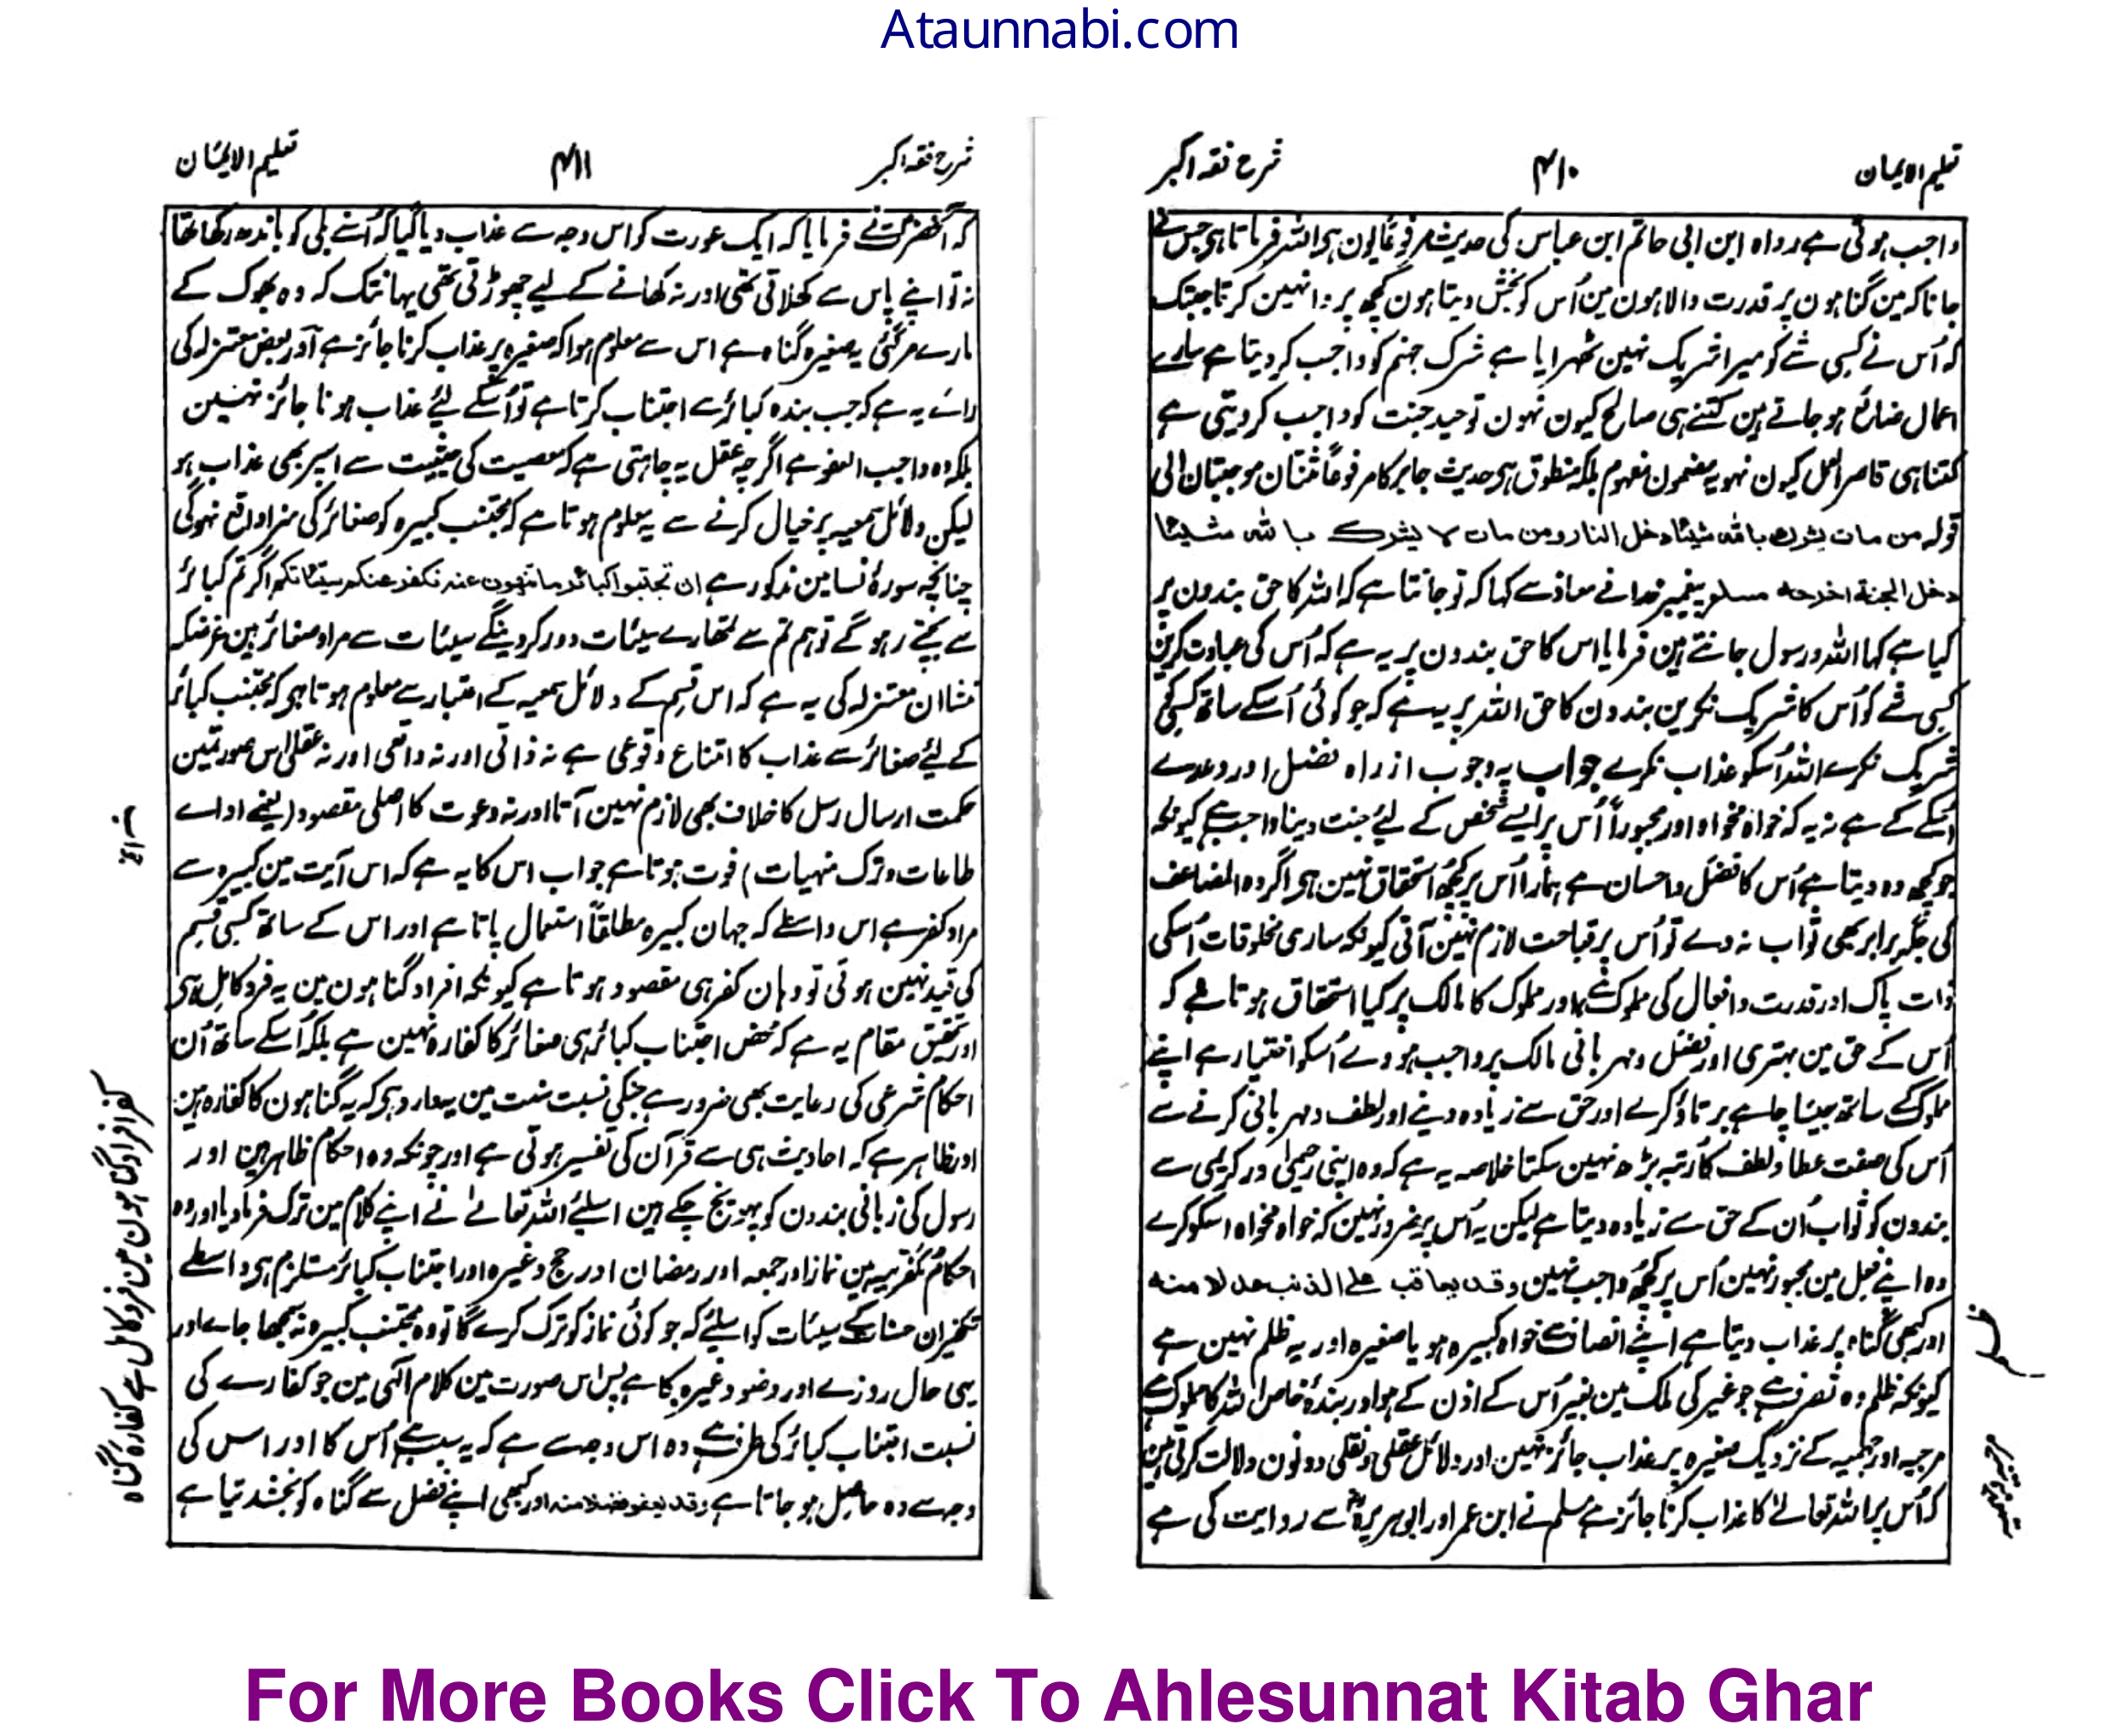 Ataunnabi.com
تعلیم الایمان
۴۱۰
شرح فقہ اکبر
واجب ہوتی ہے رواہ ابن ابی حاتم ابن عباس کی حدیث مرفوعاً یون ہے اللہ فرماتا ہی جس نے
جانا کہ مین گناہون پر قدرت والا ہون مین اُس کو بخش دیتا ہون کچھ پروا نہین کرتا جبتک
کہ اُس نے کسی شے کو میرا شریک نہین ٹھہرایا ہے شرک جہنم کو واجب کر دیتا ہے سارے
اعمال ضائع ہو جاتے ہین کتنے ہی صالح کیون نہون توحید جنت کو واجب کر دیتی ہے
کتنا ہی قاصر العمل کیون نہو یہ مضمون مفہوم بلکہ منطوق ہی حدیث جابر کا مرفوعاً ثنتان موجبتان الی
قولہ من مات یشرک باللہ شیئا دخل النار ومن مات لا یشرک باللہ شیئا
دخل الجنة اخرجه مسلم پیغمبر خدا نے معاذ سے کہا کہ تو جانتا ہے کہ اللہ کا حق بندون پر
کیا ہے کہا اللہ و رسول جانتے ہین فرمایا اس کا حق بندون پر یہ ہے کہ اُس کی عبادت کرین
کسی شے کو اُس کا شریک نکرین بندون کا حق اللہ پر یہ ہے کہ جو کوئی اُسکے ساتھ کسی کو
شریک نکرے اللہ اُسکو عذاب نکرے جواب یہ وجوب از راہ فضل اور وعدے
اُسکے کے ہے نہ یہ کہ خواہ مخواہ اور مجبوراً اُس پر ایسے شخص کے لئے جنت دینا واجب ہے کیونکہ
جو کچھ وہ دیتا ہے اُس کا فضل و احسان ہے ہمارا اُس پر کچھ استحقاق نہین ہی اگر وہ المضاعف
کی جگہ برابر بھی ثواب نہ دے تو اُس پر قباحت لازم نہین آتی کیونکہ ساری مخلوقات اُسکی
ذات پاک اور قدرت و افعال کی مملوک ہے اور مملوک کا مالک پر کیا استحقاق ہوتا ہے کہ
اُس کے حق مین بہتری اور فضل و مہربانی مالک پر واجب ہووے اُسکو اختیار ہے اپنے
مملوک کے ساتھ جیسا چاہے برتاؤ کرے اور حق سے زیادہ دینے اور لطف و مہربانی کرنے سے
اُس کی صفت عطا و لطف کا رتبہ بڑھ نہین سکتا خلاصہ یہ ہے کہ وہ اپنی رحیمی اور کریمی سے
بندون کو ثواب اُن کے حق سے زیادہ دیتا ہے لیکن یہ اُس پر ضرور نہین کہ خواہ مخواہ اسکو کرے
وہ اپنے فعل مین مجبور نہین اُس پر کچھ واجب نہین وقد یعاقب علی الذنب عدلا منه
اور کبھی گناہ پر عذاب دیتا ہے اپنے انصاف سے خواہ کبیرہ ہو یا صغیرہ اور یہ ظلم نہین ہے
کیونکہ ظلم وہ تصرف ہے جو غیر کی ملک مین بغیر اُس کے اذن کے ہو اور بندۂ خاص اللہ کا مملوک ہے
مرجیہ اور جہمیہ کے نزدیک صغیرہ پر عذاب جائز نہین اور دلائل عقلی و نقلی دونون دلالت کرتی ہین
کہ اُس پر اللہ تعالے کا عذاب کرنا جائز ہے مسلم نے ابن عمر اور ابو ہریرہؓ سے روایت کی ہے
ظلم
مرجیہ و جہمیہ
شرح فقہ اکبر
۴۱۱
تعلیم الایمان
کہ آنحضرتؐ نے فرمایا کہ ایک عورت کو اس وجہ سے عذاب دیا گیا کہ اُسنے بلی کو باندھ رکھا تھا
نہ تو اپنے پاس سے کھلاتی تھی اور نہ کھانے کے لیے چھوڑتی تھی یہانتک کہ وہ بھوک کے
مارے مر گئی یہ صغیرہ گناہ ہے اس سے معلوم ہوا کہ صغیرہ پر عذاب کرنا جائز ہے اور بعض معتزلہ کی
رائے یہ ہے کہ جب بندہ کبائر سے اجتناب کرتا ہے تو اُسکے لئے عذاب ہونا جائز نہین
بلکہ وہ واجب العفو ہے اگرچہ عقل یہ چاہتی ہے کہ معصیت کی حیثیت سے اسپر بھی عذاب ہو
لیکن دلائل سمعیہ پر خیال کرنے سے یہ معلوم ہوتا ہے کہ مجتنب کبیرہ کو صغائر کی سزا واقع نہوگی
چنانچہ سورۂ نسا مین مذکور ہے ان تجتنبوا کبائر ما تنهون عنه نکفر عنکم سیئاتکم اگر تم کبائر
سے بچتے رہو گے تو ہم تم سے تمھارے سیئات دور کر دینگے سیئات سے مراد صغائر ہین غرضکہ
منشا ان معتزلہ کی یہ ہے کہ اس قسم کے دلائل سمعیہ کے اعتبار سے معلوم ہوتا ہی کہ مجتنب کبائر
کے لئے صغائر سے عذاب کا امتناع وقوعی ہے نہ ذاتی اور نہ واقعی اور نہ عقلی اس صورتمین
حکمت ارسال رسل کا خلاف بھی لازم نہین آتا اور نہ دعوت کا اصلی مقصود (یعنے اداے
طاعات و ترک منہیات) فوت ہوتا ہے جواب اس کا یہ ہے کہ اس آیت مین کبیرہ سے
مراد کفر ہے اس واسطے کہ جہان کبیرہ مطلقاً استعمال پاتا ہے اور اس کے ساتھ کسی قسم
کی قید نہین ہوتی تو وہان کفر ہی مقصود ہوتا ہے کیونکہ افراد گناہون مین یہ فرد کامل ہی
اور تحقیق مقام یہ ہے کہ محض اجتناب کبائر ہی صغائر کا کفارہ نہین ہے بلکہ اُسکے ساتھ اُن
احکام شرعی کی رعایت بھی ضرور ہے جنکی نسبت سنت مین یہ وارد ہی کہ یہ گناہون کا کفارہ ہین
اور ظاہر ہے کہ احادیث ہی سے قرآن کی تفسیر ہوتی ہے اور چونکہ وہ احکام ظاہر ہین اور
رسول کی زبانی بندون کو پہونچ چکے ہین اسلئے اللہ تعالے نے اپنے کلام مین ترک فرما دیا اور وہ
احکام مکفریہ ہین نماز اور جمعہ اور رمضان اور حج وغیرہ اور اجتناب کبائر مستلزم ہی واسطے
تکفیر ان حسنات کے سیئات کو اسلئے کہ جو کوئی نماز کو ترک کرے گا تو وہ مجتنب کبیرہ نہ سمجھا جاے اور
یہی حال روزے اور وضو وغیرہ کا ہے پس اس صورت مین کلام الٰہی مین جو کفارے کی
نسبت اجتناب کبائر کی طرف ہے وہ اس وجہ سے ہے کہ یہ سبب ہے اُس کا اور اس کی
وجہ سے وہ حاصل ہو جاتا ہے وقد یعفو فضلا منه اور کبھی اپنے فضل سے گناہ کو بخشدیتا ہے
کفر افراد گناہون مین فرد کامل ہے کفارہ گناہ
For More Books Click To Ahlesunnat Kitab Ghar